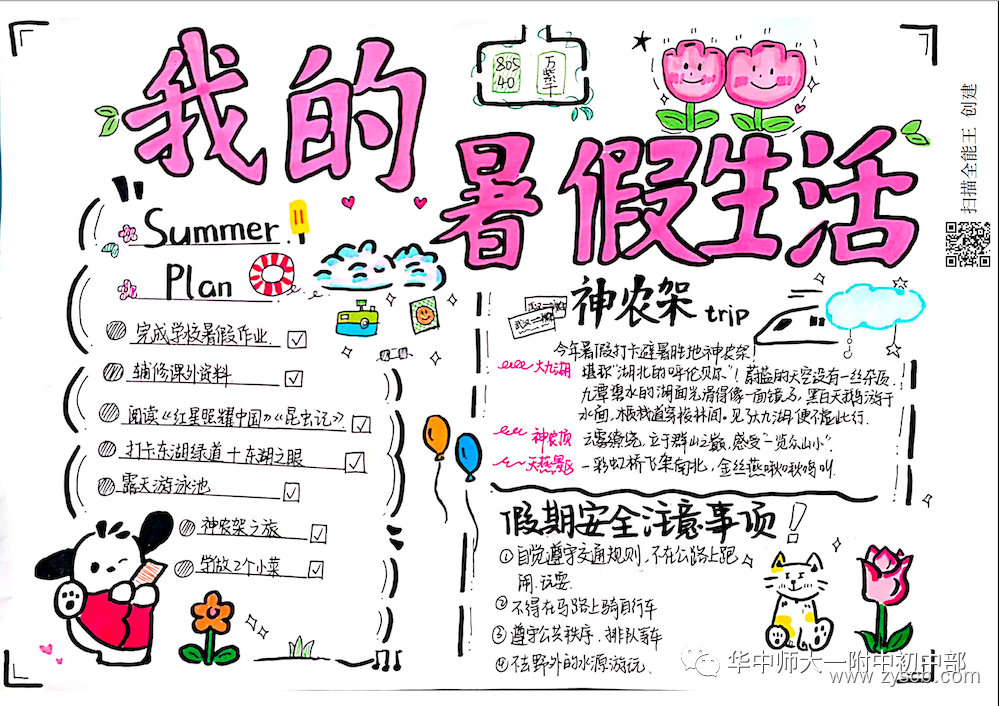 我的
暑假生活
805
40
万紫千
扫描全能王 创建
Summer
Plan
完成学校暑假作业
辅修课外资料
阅读《红星照耀中国》《昆虫记》
打卡东湖绿道+东湖之眼
露天游泳池
神农架之旅
学做2个小菜
神农架 trip
今年暑假打卡避暑胜地神农架!
大九湖 堪称"湖北的呼伦贝尔"!蔚蓝的天空没有一丝杂质,
九潭碧水的湖面光滑得像一面镜子,黑白天鹅游于
水间,木栈道穿梭林间。见了大九湖,便不虚此行.
神农顶 云雾缭绕,立于群山之巅,感受"一览众山小".
天燕景区 一彩虹桥飞架南北,金丝燕啾啾鸣叫.
假期安全注意事项!
① 自觉遵守交通规则,不在公路上跑
用、玩耍.
② 不得在马路上骑自行车
③ 遵守公共秩序,排队乘车
④ 不去野外的水源游玩.
华中师大一附中初中部
www.zyscb.com